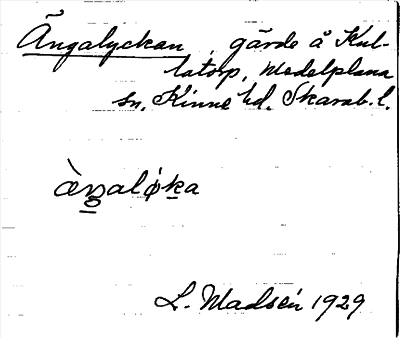 Ängalyckan, gärde å Kul-
latorp, Medelplana
sn, Kinne hd, Skarab. l.
L. Madsén 1929